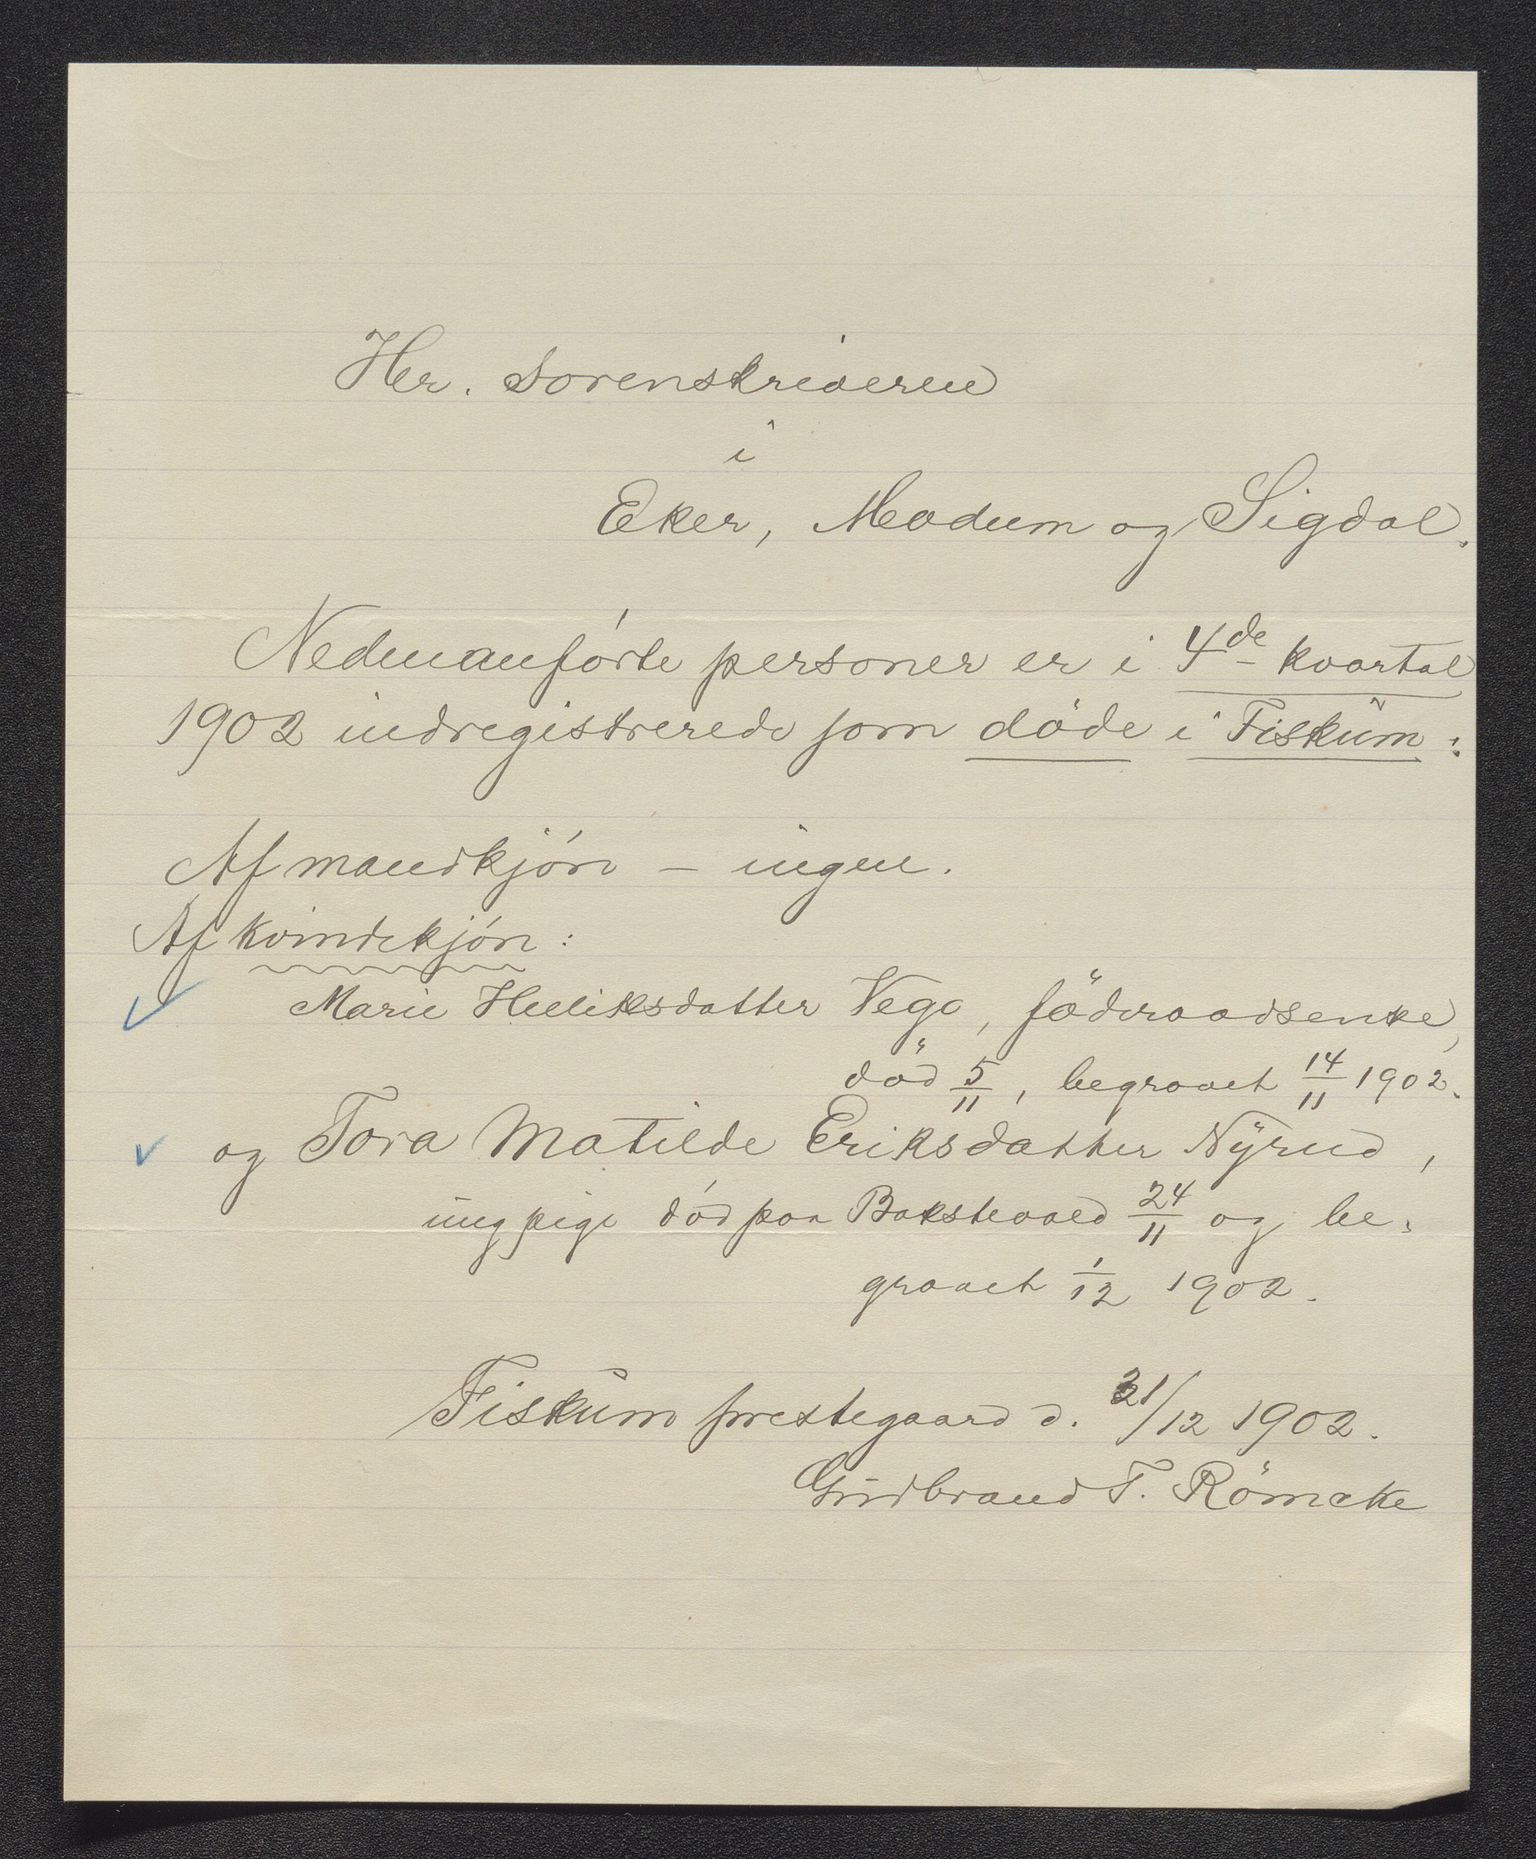 Hr. Sorenskriveren
i
Eker, Modum og Sigdal.
Nedenanførte personer er i 4de kvartal
1902 indregistrerede som døde i Fiskum:
Af mandkjøn – ingen.
Af kvindekjøn:
Marie Helliksdatter Vego, föderaadsenke,
död 5/11, begravet 14/11 1902.
og Tora Matilde Eriksdatter Nÿrud,
ung pige død paa Bakstevald 24/11 og be-
gravet 1/12 1902.
Fiskum prestegaard d. 31/12 1902.
Gudbrand T. Römcke